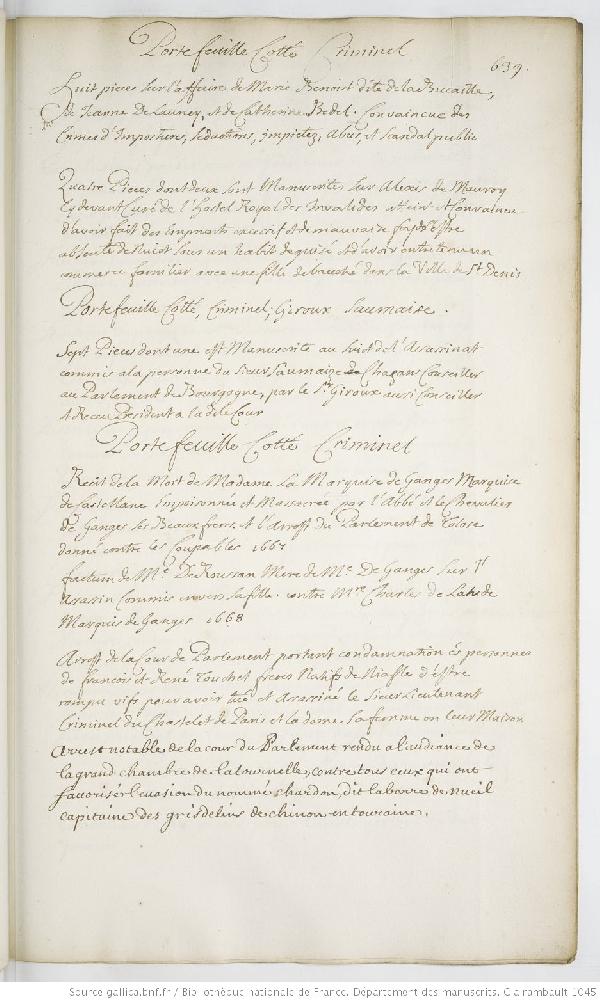 Portefeuille Cotté Criminel
639.
Huit pieces sur l'affaire de Marie Benoist dite de la Bucaille,
de Jeanne De Launey, et de Catherine Bedel. Convaincue des
Crimes d'Impostures, seductions, impietez, abus, et scandal public
Quatre Pieces dont deux sont Manuscrites sur Alexis de Mauroy
Cydevant Curé de l'hostel Royal des Invalides atteint et convaincu
d'avoir fait des emprunts excessifs et de mauvaise foy d'estre
absenté de nuict sous un habit deguisé et d'avoir entretenu un
commerce familier avec une fille debauchée dans la Ville de St Denis
Portefeuille Cotté, Criminel, Giroux Saumaise.
Sept Pieces dont une est Manuscrite au sujet de l'Assassinat
commis a la personne du sieur Saumaize de Chazans Conseiller
au Parlement de Bourgogne, par le Sr Giroux aussi Conseiller
et President a la dite Cour
Portefeuille Cotté Criminel
Recit de la Mort de Madame La Marquise de Ganges Marquise
de Castellane Empoisonnée et Massacrée par l'Abbé et le Chevalier
De Ganges ses Beaux freres, et l'Arrest du Parlement de Tolose
donné contre les Coupables 1667
factum de Me De Rousan Mere de Me De Ganges sur l'
assassin Commis envers sa fille. contre Mre Charles de Latude
Marquis de Ganges 1668
Arrest de la Cour de Parlement portant condamnation és personnes
de francois et René Touchet freres Natifs de Niafle d'estre
rompu vifs pour avoir tué et assassiné le sieur Lieutenant
Criminel du Chastelet de Paris et la dame sa femme en leur Maison
Arrest notable de la cour du Parlement rendu a laudiance de
la grand chambre de la tournelle, contre tous ceux qui ont
favorisér levasion du nommé chardon, dit labarre de nueil
capitaine des grisdelins de chinon en touraine.
Source gallica.bnf.fr / Bibliothèque nationale de France. Département des manuscrits. Clairambault 1045